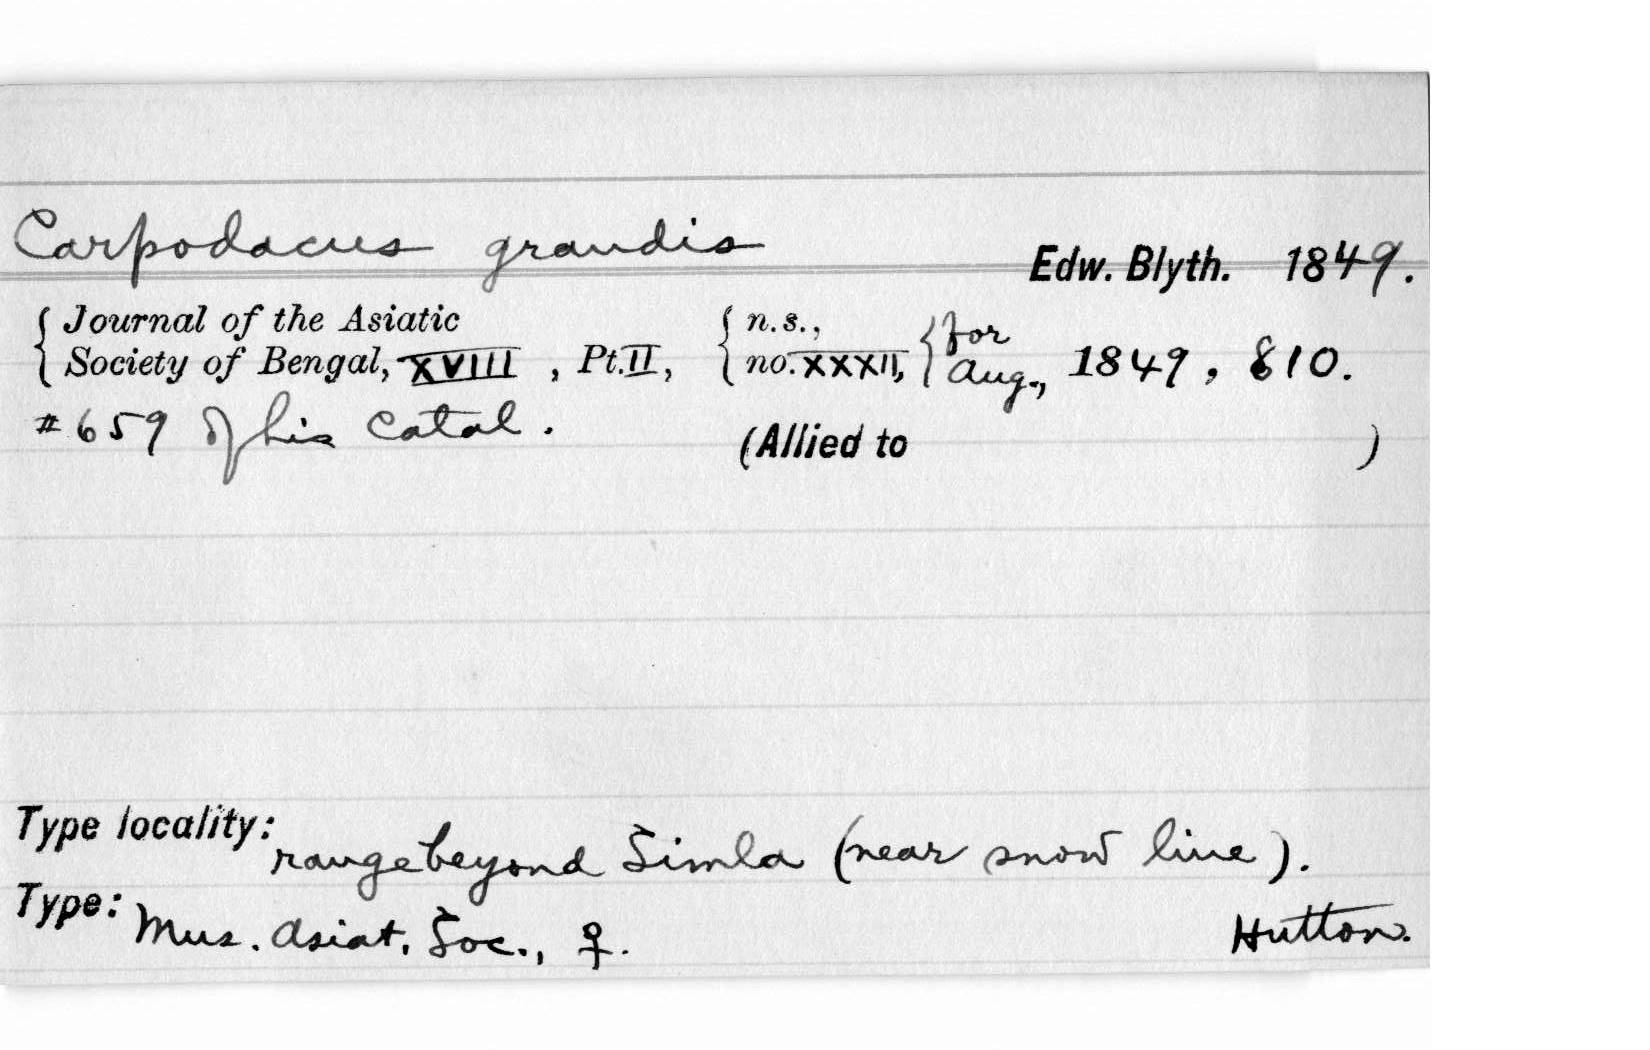 Carpodacus grandis
Edw. Blyth. 1849.
{ Journal of the Asiatic { n.s., { for
Society of Bengal, XVIII , Pt. II, no. XXXII, Aug., 1849, 810.
#659 of his Catal.
(Allied to )
Type locality: range beyond Simla (near snow line).
Type: Mus. Asiat. Soc., ♀. Hutton.